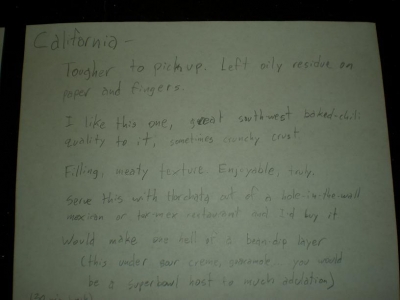 California -
Tougher to pick up. Left oily residue on
paper and fingers.
I like this one, great southwest baked-chili
quality to it, sometimes crunchy crust
Filling, meaty texture. Enjoyable, truly.
Serve this with tor chips out of a hole-in-the-wall
mexican or tex mex restaurant and I'd buy it
Would make one hell of a bean-dip layer
(this under sour creme, guacamole... you would
be a superbowl host to much adulation)